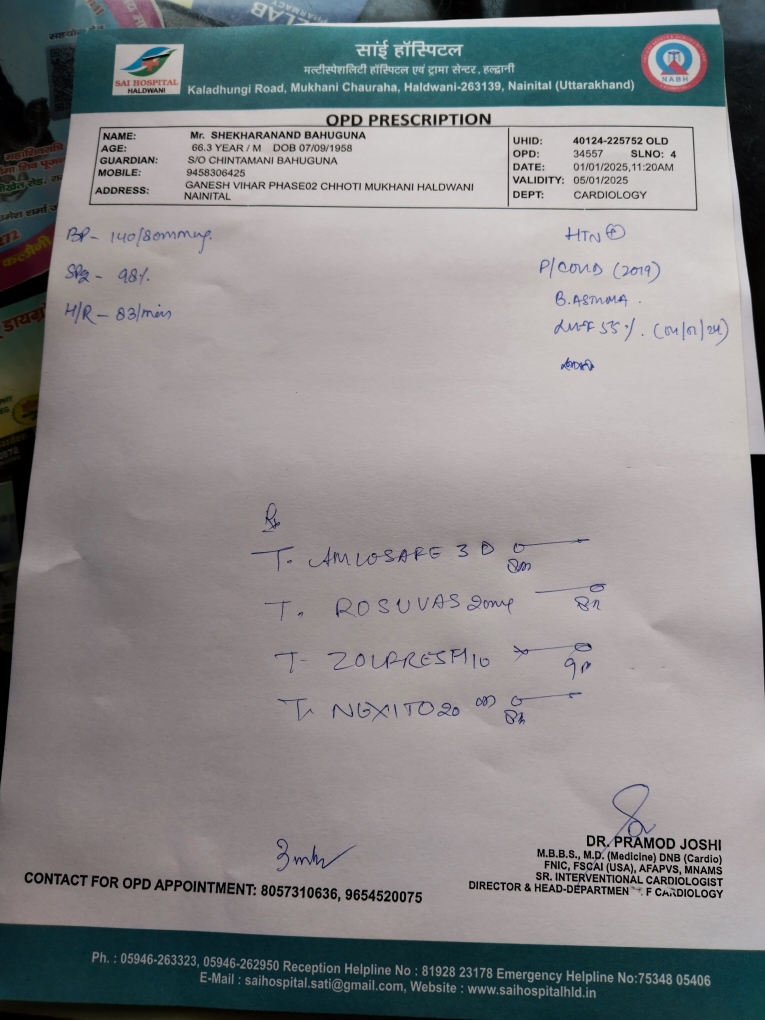 सांई हॉस्पिटल
मल्टीस्पेशलिटी हॉस्पिटल एवं ट्रामा सेन्टर, हल्द्वानी
Kaladhungi Road, Mukhani Chauraha, Haldwani-263139, Nainital (Uttarakhand)
SAI HOSPITAL
HALDWANI
NABH
OPD PRESCRIPTION
NAME: Mr. SHEKHARANAND BAHUGUNA
AGE: 66.3 YEAR / M DOB 07/09/1958
GUARDIAN: S/O CHINTAMANI BAHUGUNA
MOBILE: 9458306425
ADDRESS: GANESH VIHAR PHASE02 CHHOTI MUKHANI HALDWANI
NAINITAL
UHID: 40124-225752 OLD
OPD: 34557 SLNO: 4
DATE: 01/01/2025,11:20AM
VALIDITY: 05/01/2025
DEPT: CARDIOLOGY
BP - 140/80mmHg.
SPO2 - 98%
H/R - 83/min
HTN +
P/COVID (2019)
B.ASTHMA.
LVEF 55%.
Rx
T. AMLOSAFE 3D 8am
T. ROSUVAS 20mg
T- ZOLFRESH 10 9p
T. NEXITO 20
DR. PRAMOD JOSHI
M.B.B.S., M.D. (Medicine) DNB (Cardio)
FNIC, FSCAI (USA), AFAPVS, MNAMS
SR. INTERVENTIONAL CARDIOLOGIST
DIRECTOR & HEAD-DEPARTMEN F CARDIOLOGY
CONTACT FOR OPD APPOINTMENT: 8057310636, 9654520075
Ph. : 05946-263323, 05946-262950 Reception Helpline No : 81928 23178 Emergency Helpline No:75348 05406
E-Mail : saihospital.sati@gmail.com, Website : www.saihospitalhld.in